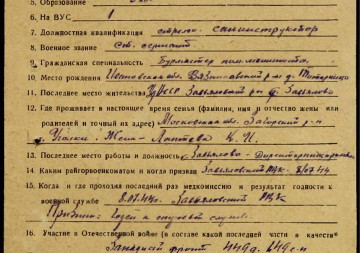 5. Образование
6. На ВУС 1
7. Должностная квалификация стрелок санинструктор
8. Военное звание ст. сержант
9. Гражданская специальность Бурмастер
10. Место рождения Ивановская обл. Вязниковский р-н д.
11. Последнее место жительства УАССР Завьяловский р-н с. Завьялово
12. Где проживает в настоящее время семья (фамилия, имя и отчество жены или
родителей и точный их адрес) Московская обл. Загорский р-н
Жена Лаптева К. И.
13. Последнее место работы и должность Завьялово - Директор
14. Каким райгорвоенкоматом и когда призван Завьяловский РВК 8/07 44
15. Когда и где проходил последний раз медкомиссию и результат годности к
военной службе 8.07.44г. Завьяловский РВК
Признан: Годен к строевой службе
16. Участие в Отечественной войне (в составе какой последней части и в качестве
Западный фронт